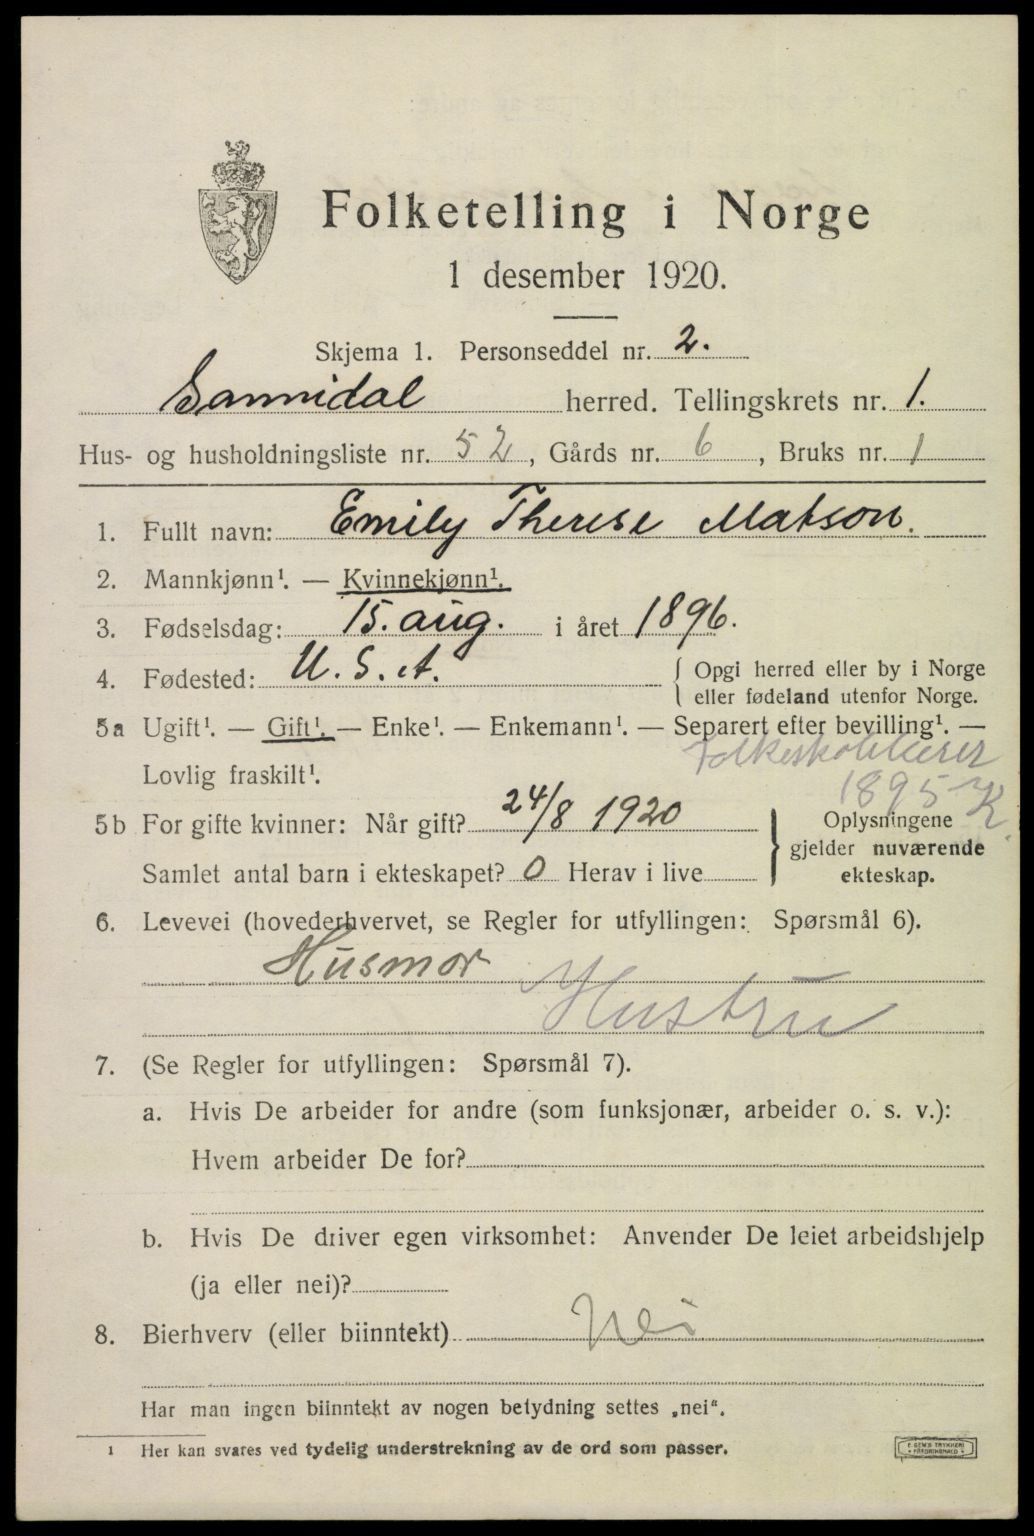 Folketelling i Norge
1 desember 1920.
Skjema 1. Personseddel nr. 2.
Sannidal herred. Tellingskrets nr. 1.
Hus- og husholdningsliste nr. 52, Gårds nr. 6, Bruks nr. 1
1. Fullt navn: Emily Therese Matson.
2. Mannkjønn¹. — Kvinnekjønn¹.
3. Fødselsdag: 15. aug. i året 1896.
4. Fødested: U. S. A. { Opgi herred eller by i Norge
eller fødeland utenfor Norge.
5a Ugift¹. — Gift¹. — Enke¹. — Enkemann¹. — Separert efter bevilling¹. —
Folkeskolelærer
Lovlig fraskilt¹.
1895 K.
5b For gifte kvinner: Når gift? 24/8 1920
Samlet antal barn i ekteskapet? 0 Herav i live
} Oplysningene
gjelder nuværende
ekteskap.
6. Levevei (hovederhvervet, se Regler for utfyllingen: Spørsmål 6).
Husmor
Hustru
7. (Se Regler for utfyllingen: Spørsmål 7).
a. Hvis De arbeider for andre (som funksjonær, arbeider o. s. v.):
Hvem arbeider De for?
b. Hvis De driver egen virksomhet: Anvender De leiet arbeidshjelp
(ja eller nei)?
8. Bierhverv (eller biinntekt) Nei
Har man ingen biinntekt av nogen betydning settes „nei“.
¹ Her kan svares ved tydelig understrekning av de ord som passer.